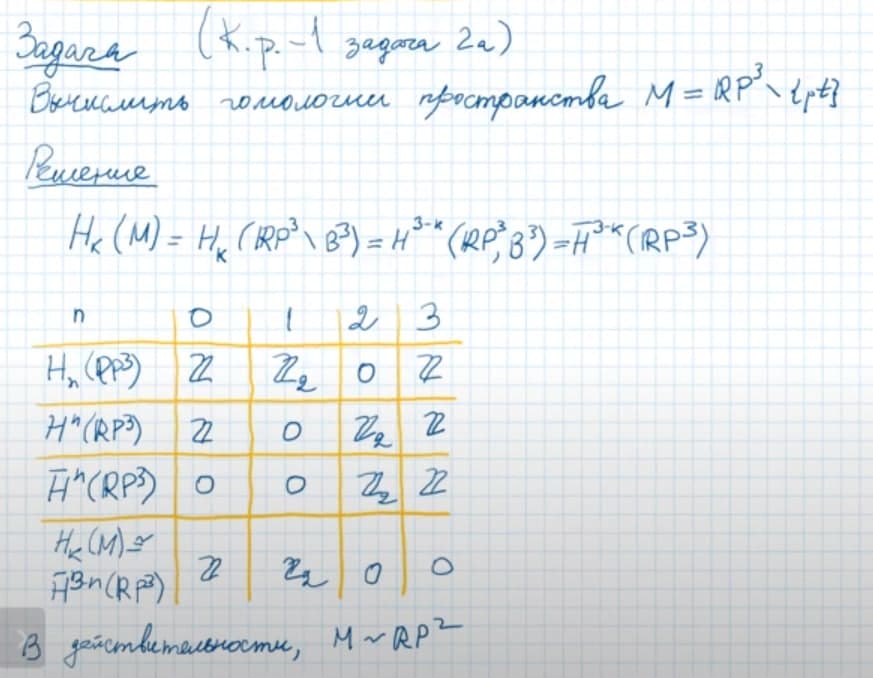 Задача (К.р.-1 задача 2а)
Вычислить гомологии пространства M = ℝP³ \ {pt}
Решение
Hₖ(M) = Hₖ(ℝP³ \ B³) = H³⁻ᵏ(ℝP³, B³) = H̅³⁻ᵏ(ℝP³)
n 0 1 2 3
Hₙ(ℝP³) ℤ ℤ₂ 0 ℤ
Hⁿ(ℝP³) ℤ 0 ℤ₂ ℤ
H̅ⁿ(ℝP³) 0 0 ℤ₂ ℤ
Hₖ(M) ≃
H̅³⁻ⁿ(ℝP³) ℤ ℤ₂ 0 0
В действительности, M ~ ℝP²